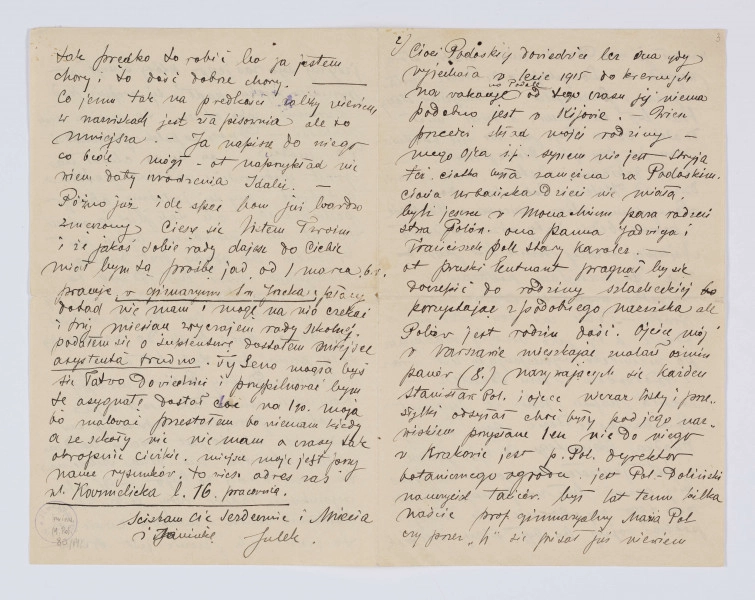 tak prędko to robić bo ja jestem
chory i to dość dobrze chory. —
Co jemu tak na prędkości
w nazwiskach jest zła pisownia ale to
mniejsza. — Ja napiszę do niego
co będę mógł — ot naprzykład nie
wiem daty urodzenia Idalii. —
Późno już idę spać bom już bardzo
zmęczony Cieszę się listem Twoim
i że jakoś sobie rady dajesz do Ciebie
miał bym tą prośbę jad. od 1 marca b.r.
pracuję w gimnazyum Św Jacka i płacy
dotąd nie mam i mogę na nią czekać
i trzy miesiące zwyczajem rady szkolnej.
podałem się o suplenturę dostałem miejsce
asystenta trudno. Ty Leno mogła byś
się łatwo dowiedzieć i przypilnować bym
tę asygnatę dostał na 1go. maja
bo malować przestałem bo niemam kiedy
a ze szkoły nic nie mam a czasy tak
okropnie ciężkie. miejsce moje jest przy
nauce rysunków. to niesie adres zaś
ul. Karmelicka l. 16. pracownia.
ściskam Cię serdecznie i Miecia
i Janinkę Julek.
2) Cioci Podoskiej dowiedzieć lecz ona gdy
wyjechała w lecie 1915 do krewnych
na Podole
na wakacje od tego czasu jej niema
podobno jest w Kijowie. —
przecież skąd mojej rodziny —
mego Ojca i.t.p. synem nie jest — Stryja
też. ciotka była zamężna za Podoskim.
ciocia Urbańska Dzieci nie miała.
byli jeszcze w Monachium para rodzeń
stwa Polów. ona panna Jadwiga i
Franciszek Pol stary kawaler. —
ot pruski leutnant pragnął by się
doczepić do rodziny szlacheckiej
korzystając z podobnego nazwiska ale
Polów jest rodzin dość. Ojciec mój
w Warszawie mieszkając znalazł ośmiu
panów (8.) nazywających się każden
Stanisław Pol. i ojciec nieraz listy i prze-
syłki odsyłał choć były pod jego naz-
wiskiem przysłane lecz nie do niego
w Krakowie jest p. Pol. dyrektor
botanicznego ogrodu. jest Pol-Doliński
nauczyciel tańców. był lat temu kilka
nadto prof. gimnazyalny Pol
czy przez „h" się pisał już niewiem